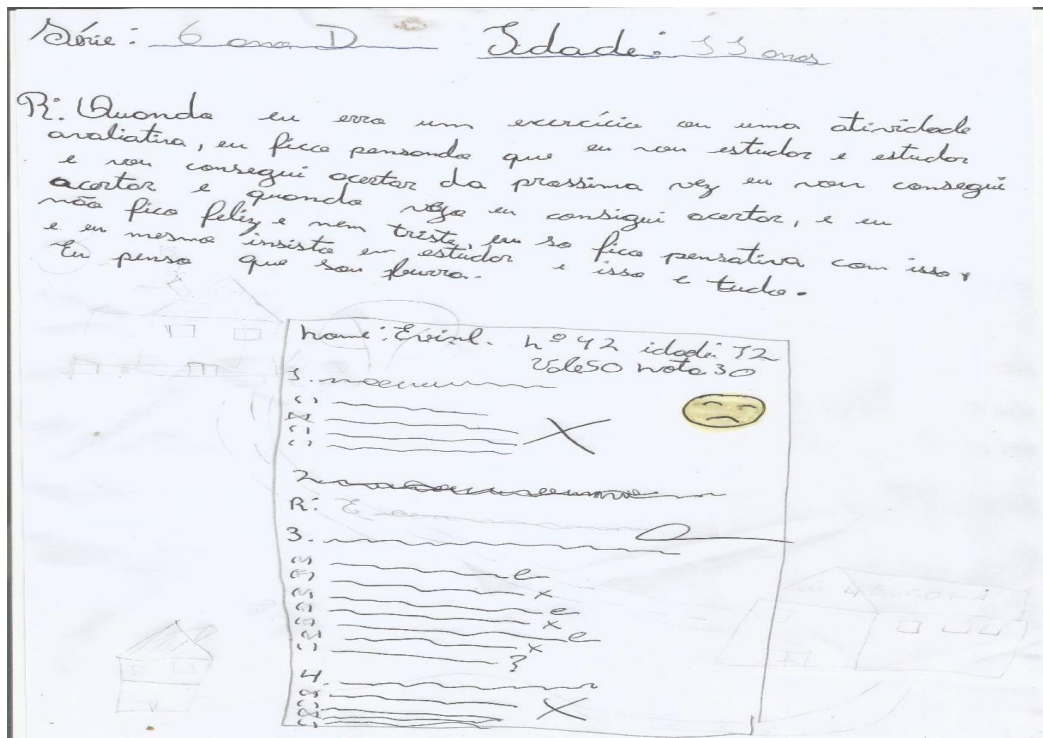 Série: 6 ano D Idade: 11 anos
R: Quando eu erro um exercício ou uma atividade
avaliativa, eu fico pensando que eu vou estudar e estudar
e vou consegui acertar da prossima vez eu vou consegui
acertar e quando vejo eu consigui acertar, e eu
não fico feliz e nem triste, eu so fico pensativa com isso,
e eu mesma insisto em estudar e isso e tudo.
Eu penso que sou burra.
nome: nº 42 idade: 12
Vale 50 nota 30
1.
2.
R:
3.
4.